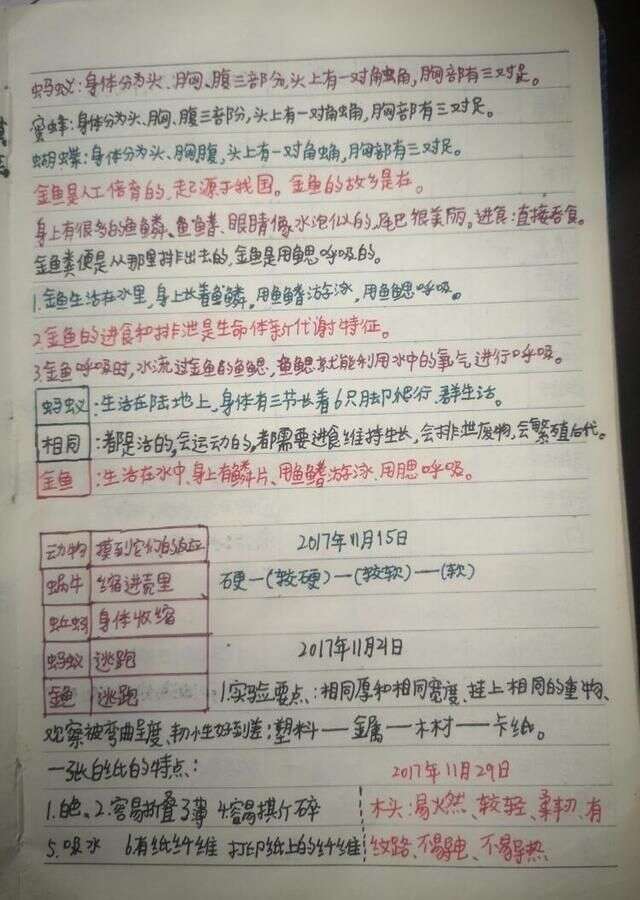 蚂蚁:身体分为头、胸、腹三部分,头上有一对角虫角,胸部有三对足。
蜜蜂:身体分为头、胸、腹三部分,头上有一对角虫角,胸部有三对足。
蝴蝶:身体分为头、胸腹,头上有一对角虫角,胸部有三对足。
金鱼是人工培育的,起源于我国。金鱼的故乡是在。
身上有很多的鱼鳞、鱼鳍、眼睛像水泡似的,尾巴很美丽。进食:直接吞食。
金鱼粪便是从那里排出去的,金鱼是用鳃呼吸的。
1.金鱼生活在水里,身上长着鱼鳞,用鱼鳍游泳,用鱼鳃呼吸。
2.金鱼的进食和排泄是生命体新代谢特征。
3.金鱼呼吸时,水流过金鱼的鱼鳃,鱼鳃就能利用水中的氧气进行呼吸。
蚂蚁:生活在陆地上,身体有三节长着6只脚爬行.群生活。
相同:都是活的,会运动的,都需要进食维持生长,会排泄废物,会繁殖后代。
金鱼:生活在水中、身上有鳞片、用鱼鳍游泳.用腮呼吸。
动物 摸到它们的反应 2017年11月15日
蜗牛 缩进壳里 硬—(较硬)—(较软)—(软)
蚯蚓 身体收缩
蚂蚁 逃跑 2017年11月21日
金鱼 逃跑 1.实验要点:相同厚和相同宽度、挂上相同的重物、
观察被弯曲呈度、韧性好到差:塑料—金属—木材—卡纸。
一张白纸的特点: 2017年11月29日
1.白色、2.容易折叠 3薄 4.容易撕碎 木头:易火然、较轻、柔韧、有
5.吸水 6.有纸纤维 打印纸上的纤维 纹路、不易导电、不易导热